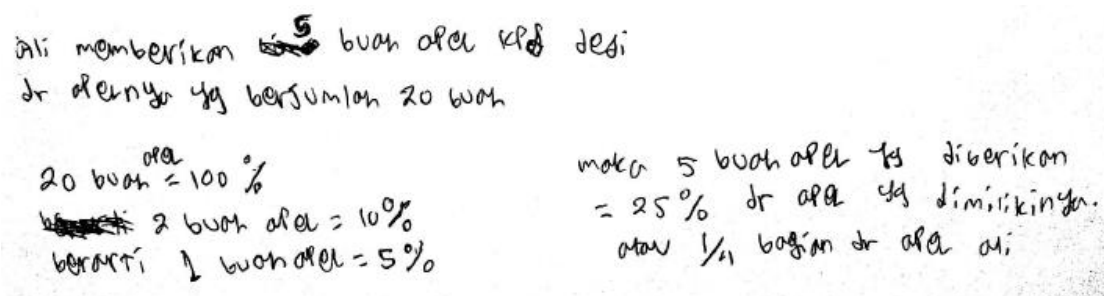 Ali memberikan 5 buah apel kpd desi
dr apelnya yg berjumlah 20 buah
20 buah apel = 100 %
2 buah apel = 10%
berarti 1 buah apel = 5%
maka 5 buah apel yg diberikan
= 25% dr apel yg dimilikinya.
atau 1/4 bagian dr apel ali